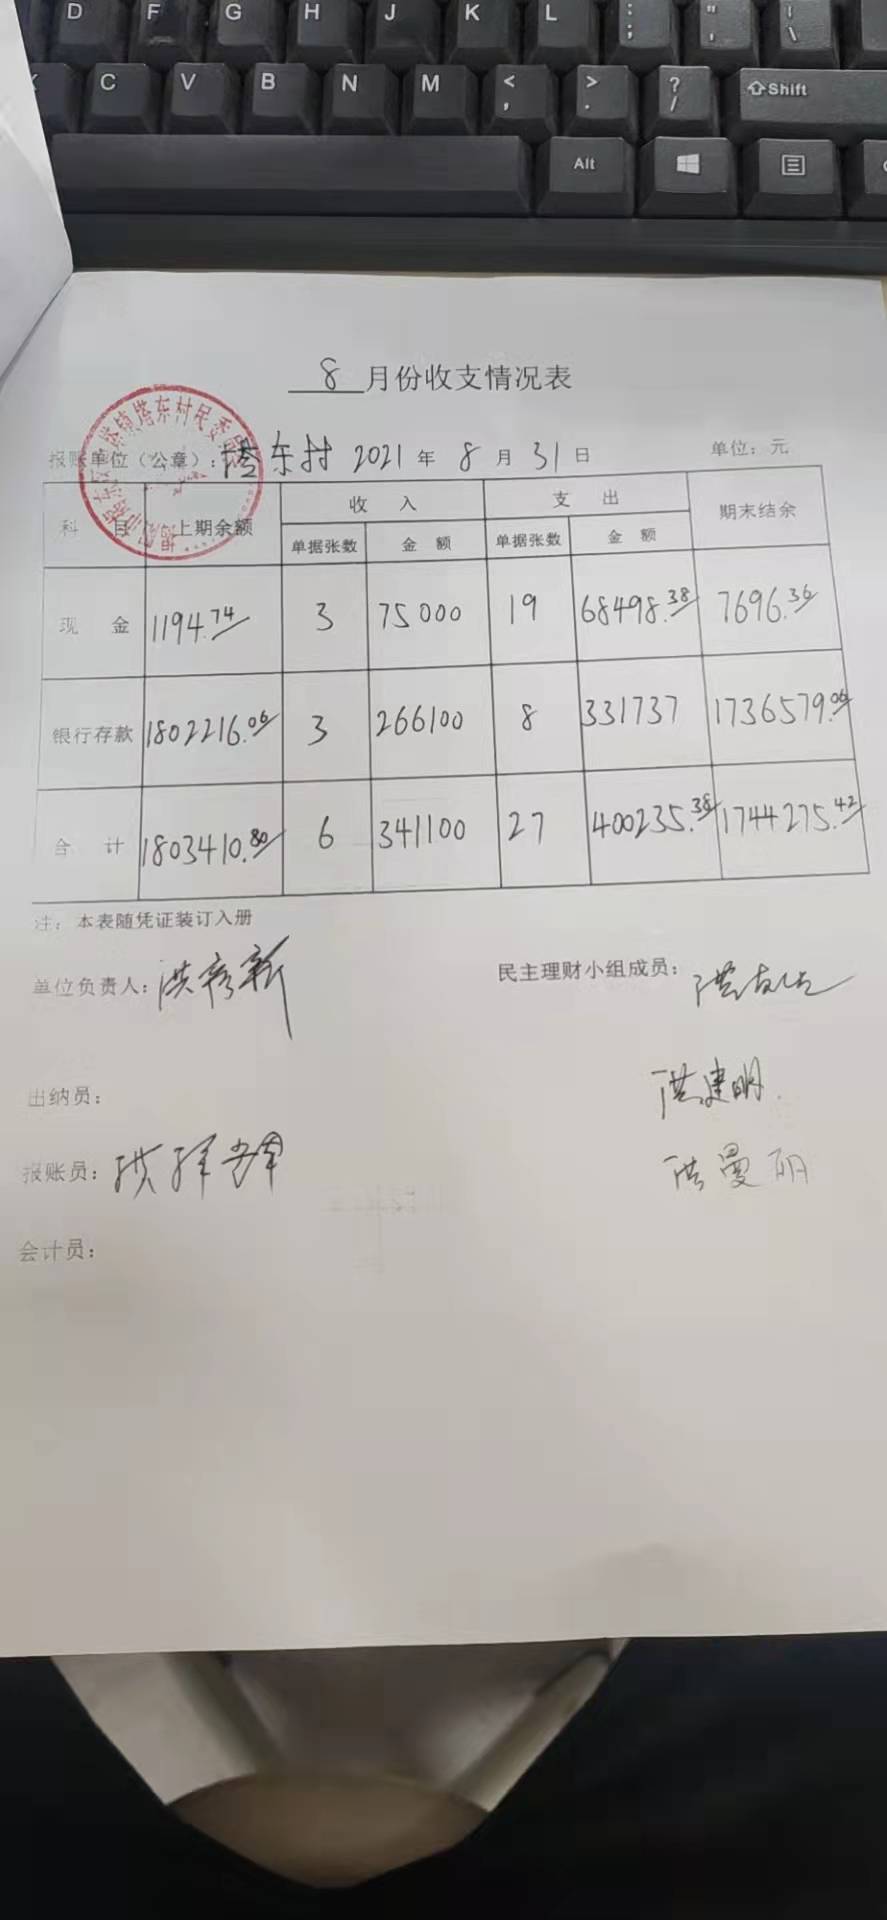 D F G H J K L : ; " ' | \
C V B N M < , > . ? / Shift
Alt
8 月份收支情况表
报账单位（公章）：塔东村 2021 年 8 月 31 日 单位：元
科 目 上期余额 收 入 支 出 期末结余
单据张数 金 额 单据张数 金 额
现 金 1194.74 3 75000 19 68498.38 7696.36
银行存款 1802216.06 3 266100 8 331737 1736579.06
合 计 1803410.80 6 341100 27 400235.38 1744275.42
注：本表随凭证装订入册
单位负责人：洪彦新 民主理财小组成员：洪
出纳员： 洪建明
报账员：洪 洪曼丽
会计员：